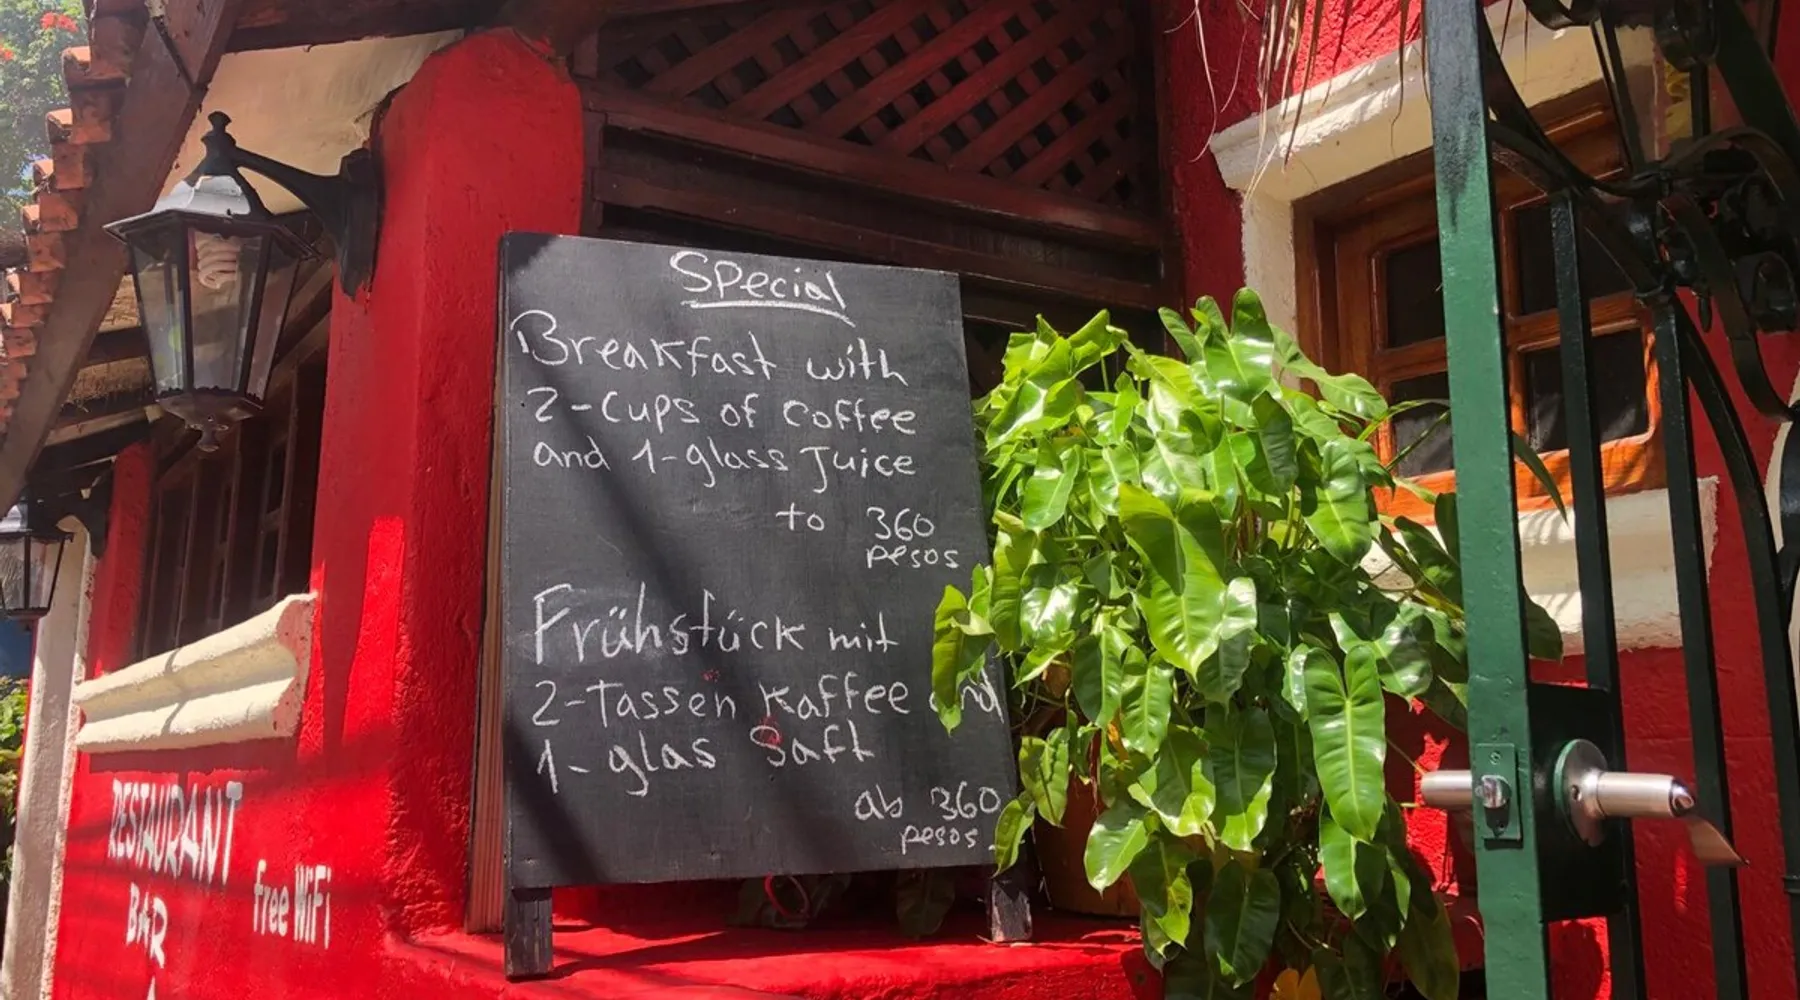 Special
Breakfast with
2-Cups of Coffee
and 1-glass Juice
to 360
pesos
Frühstück mit
2-Tassen Kaffee und
1-glas Saft
ab 360
pesos.
RESTAURANT
BAR
free WiFi